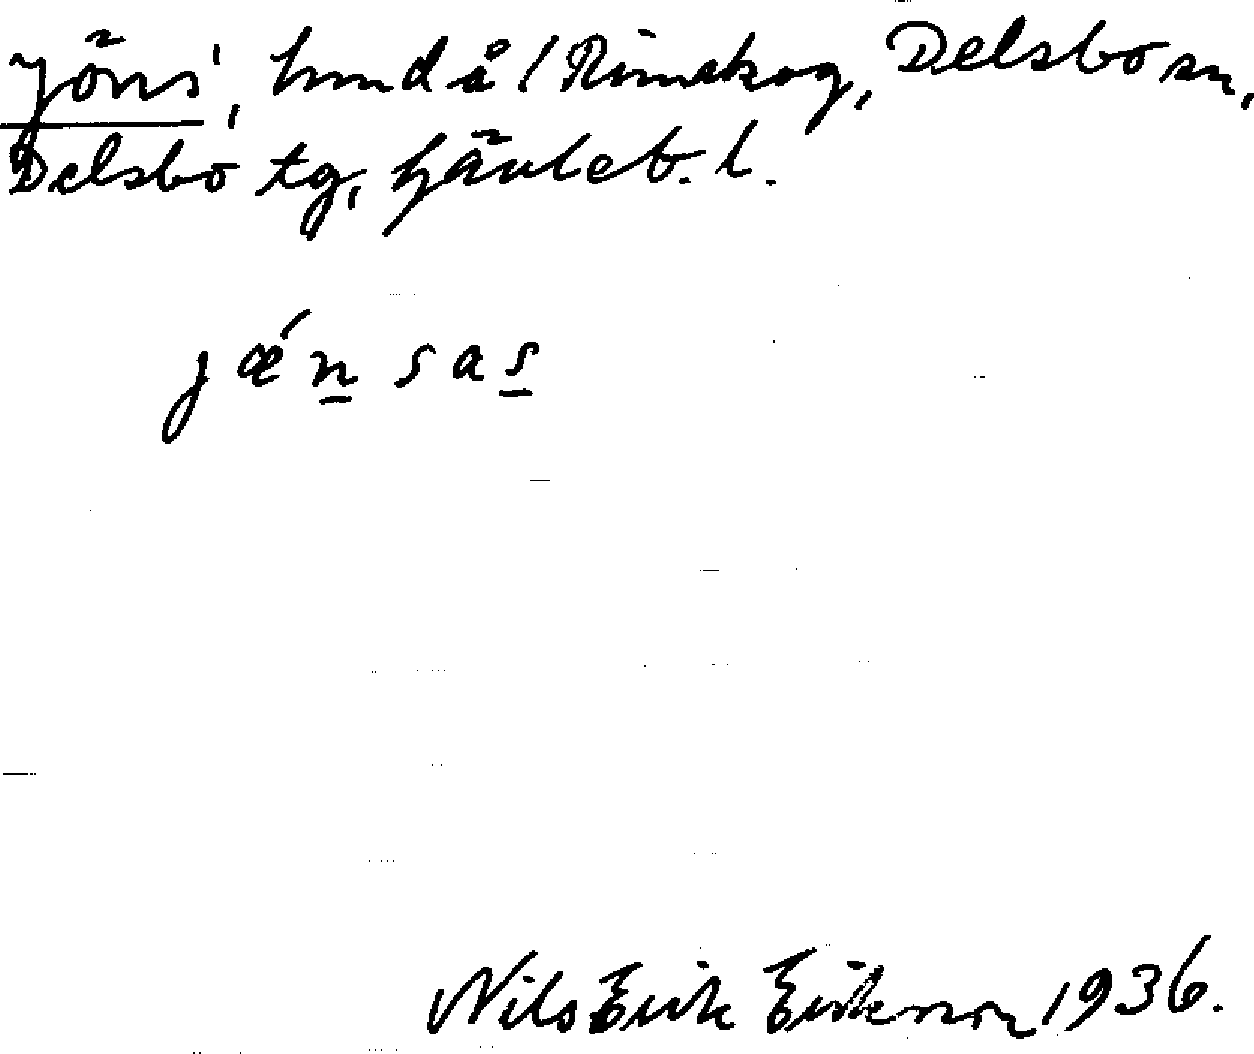 Jöns, hmd å /Rimskog, Delsbo sn,
Delsbo tg, Gävleb. l.
jǽn̲sas̲
Nils Erik Eriksson 1936.